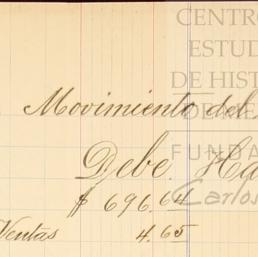 CENTRO
ESTUD
DE HIST
DE ME
FUNDA
Carlos
Movimiento del
Debe. Ha
$ 696.64
Ventas 4.65